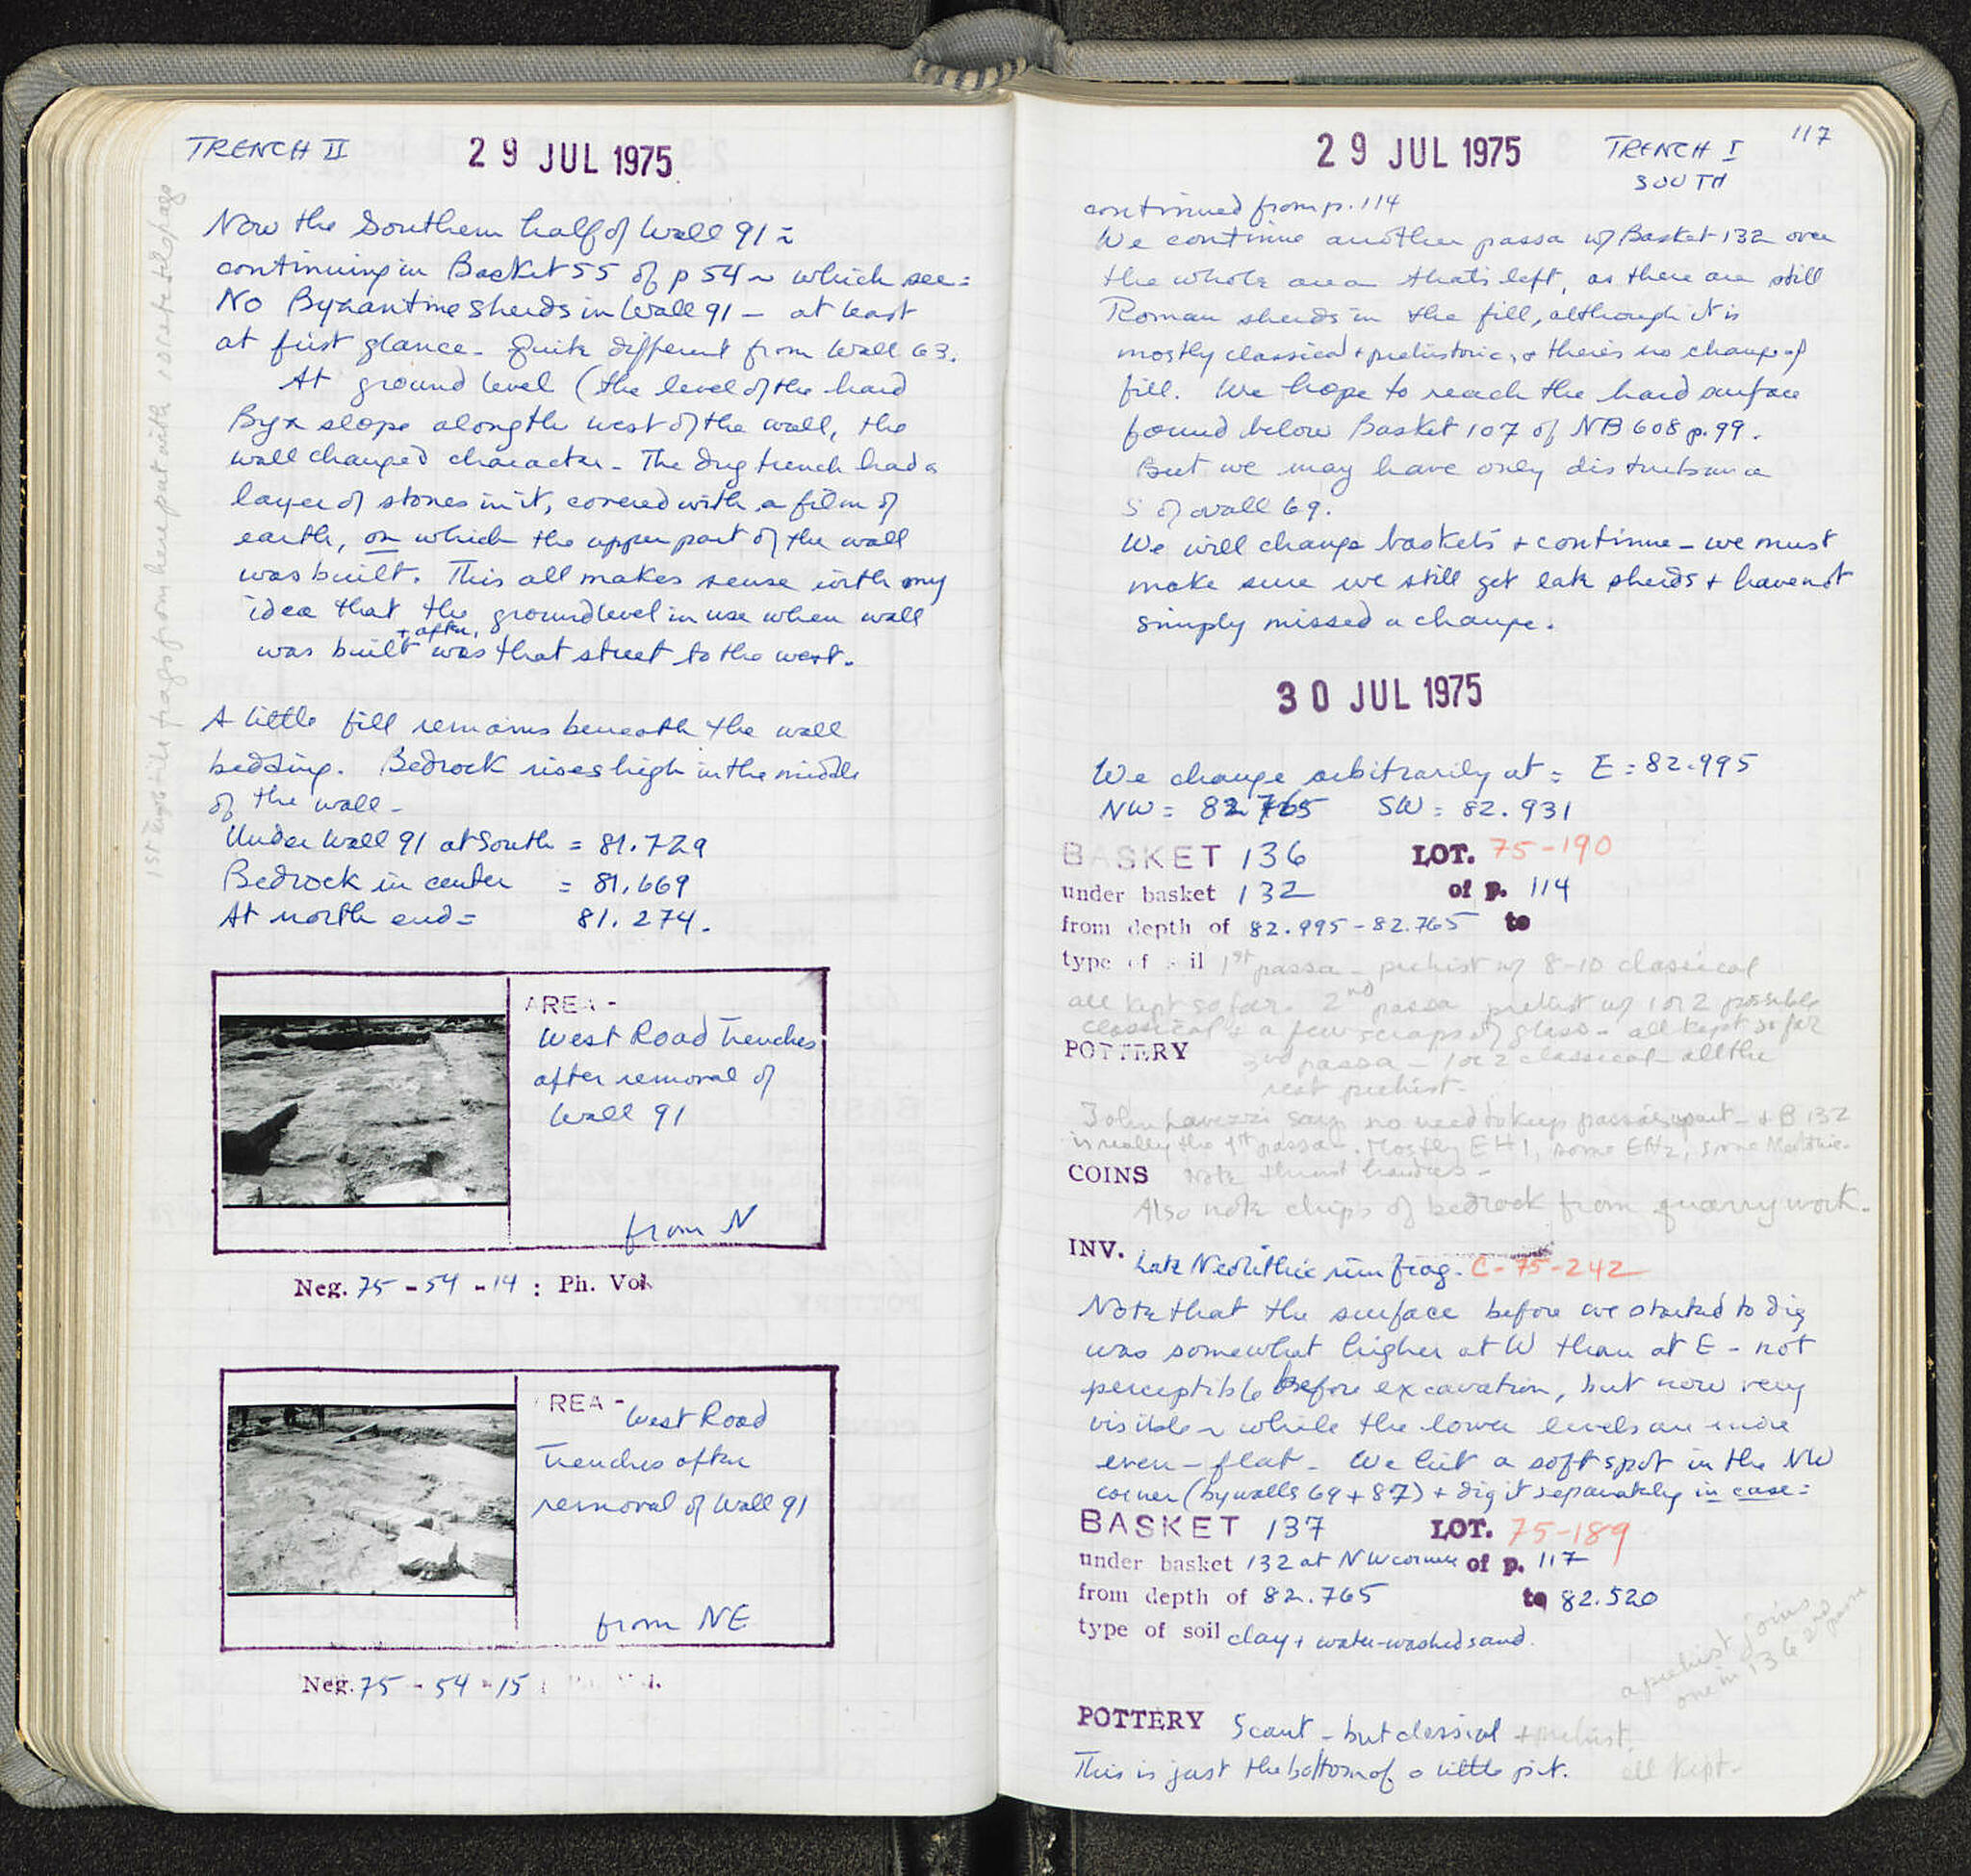 TRENCH II
29 JUL 1975
Now the Southern half of Wall 91 =
continuing in Basket 55 of p 54 ~ which see =
No Byzantine sherds in Wall 91 - at least
at first glance - Quite different from Wall 63.
At ground level (the level of the hard
Byz slope along the west of the wall, the
wall changed character - The dug trench had a
layer of stones in it, covered with a film of
earth, on which the upper part of the wall
was built. This all makes sense with my
idea that the ground level in use when wall
was built + after, was that street to the west.
A little fill remains beneath the wall
bedding. Bedrock rises high in the middle
of the wall -
Under Wall 91 at South = 81.729
Bedrock in center = 81.669
At north end = 81.274.
AREA -
West Road Trenches
after removal of
Wall 91
from N
Neg. 75 - 54 - 14 : Ph. Vol.
REA -
West Road
Trenches after
removal of Wall 91
from NE
Neg. 75 - 54 - 15
1st
frags from here put with
29 JUL 1975
TRENCH I
SOUTH
117
continued from p. 114
We continue another passa w/ Basket 132 over
the whole area that's left, as there are still
Roman sherds in the fill, although it is
mostly classical + prehistoric, + there's no change of
fill. We hope to reach the hard surface
found below Basket 107 of NB 608 p. 99.
But we may have only disturbance
S of wall 69.
We will change baskets + continue - we must
make sure we still get late sherds + have not
simply missed a change.
30 JUL 1975
We change arbitrarily at = E = 82.995
NW = 82.765 SW = 82.931
BASKET 136 LOT. 75-190
under basket 132 of p. 114
from depth of 82.995 - 82.765 to
type of soil 1st passa - prehist w/ 8-10 classical
all kept so far. 2nd passa prehist w/ 1 or 2 possible
classical + a few scraps of glass - all kept so far
POTTERY 3rd passa - 1 or 2 classical all the
rest prehist -
John Lavezzi says no need to keep passas apart - + B 132
is really the 1st passa. Mostly EH 1, some EH2, some Neolithic.
COINS Note thrust handles -
Also note chips of bedrock from quarry work.
INV. Late Neolithic rim frag. C-75-242
Note that the surface before we started to dig
was somewhat higher at W than at E - not
perceptible before excavation, but now very
visible ~ while the lower levels are more
even - flat - We hit a soft spot in the NW
corner (by walls 69 + 87) + dig it separately in case =
BASKET 137 LOT. 75-189
under basket 132 at NW corner of p. 117
from depth of 82.765 to 82.520
type of soil clay + water-washed sand.
a prehist joins
one in 136 2nd passa
POTTERY Scant - but classical + prehist.
This is just the bottom of a little pit. all kept -